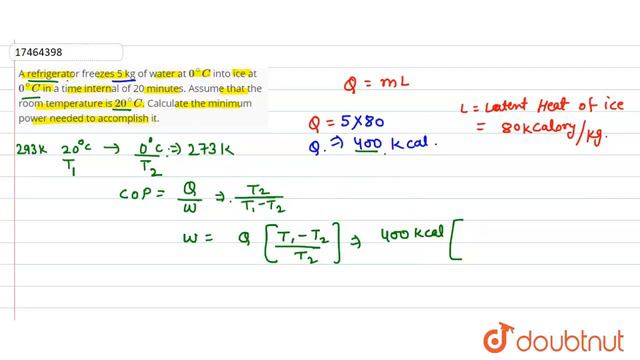 17464398
A refrigerator freezes 5 kg of water at 0°C into ice at
0°C in a time internal of 20 minutes. Assume that the
room temperature is 20°C. Calculate the minimum
power needed to accomplish it.
Q = mL
L = Latent Heat of ice
= 80 kcalory/kg.
Q = 5 X 80
Q ⇒ 400 Kcal.
293K 20°C → 0°C ⇒ 273 K
T1 T2
COP = Q/W ⇒ T2/(T1-T2)
W = Q [(T1-T2)/T2] ⇒ 400 kcal [
doubtnut